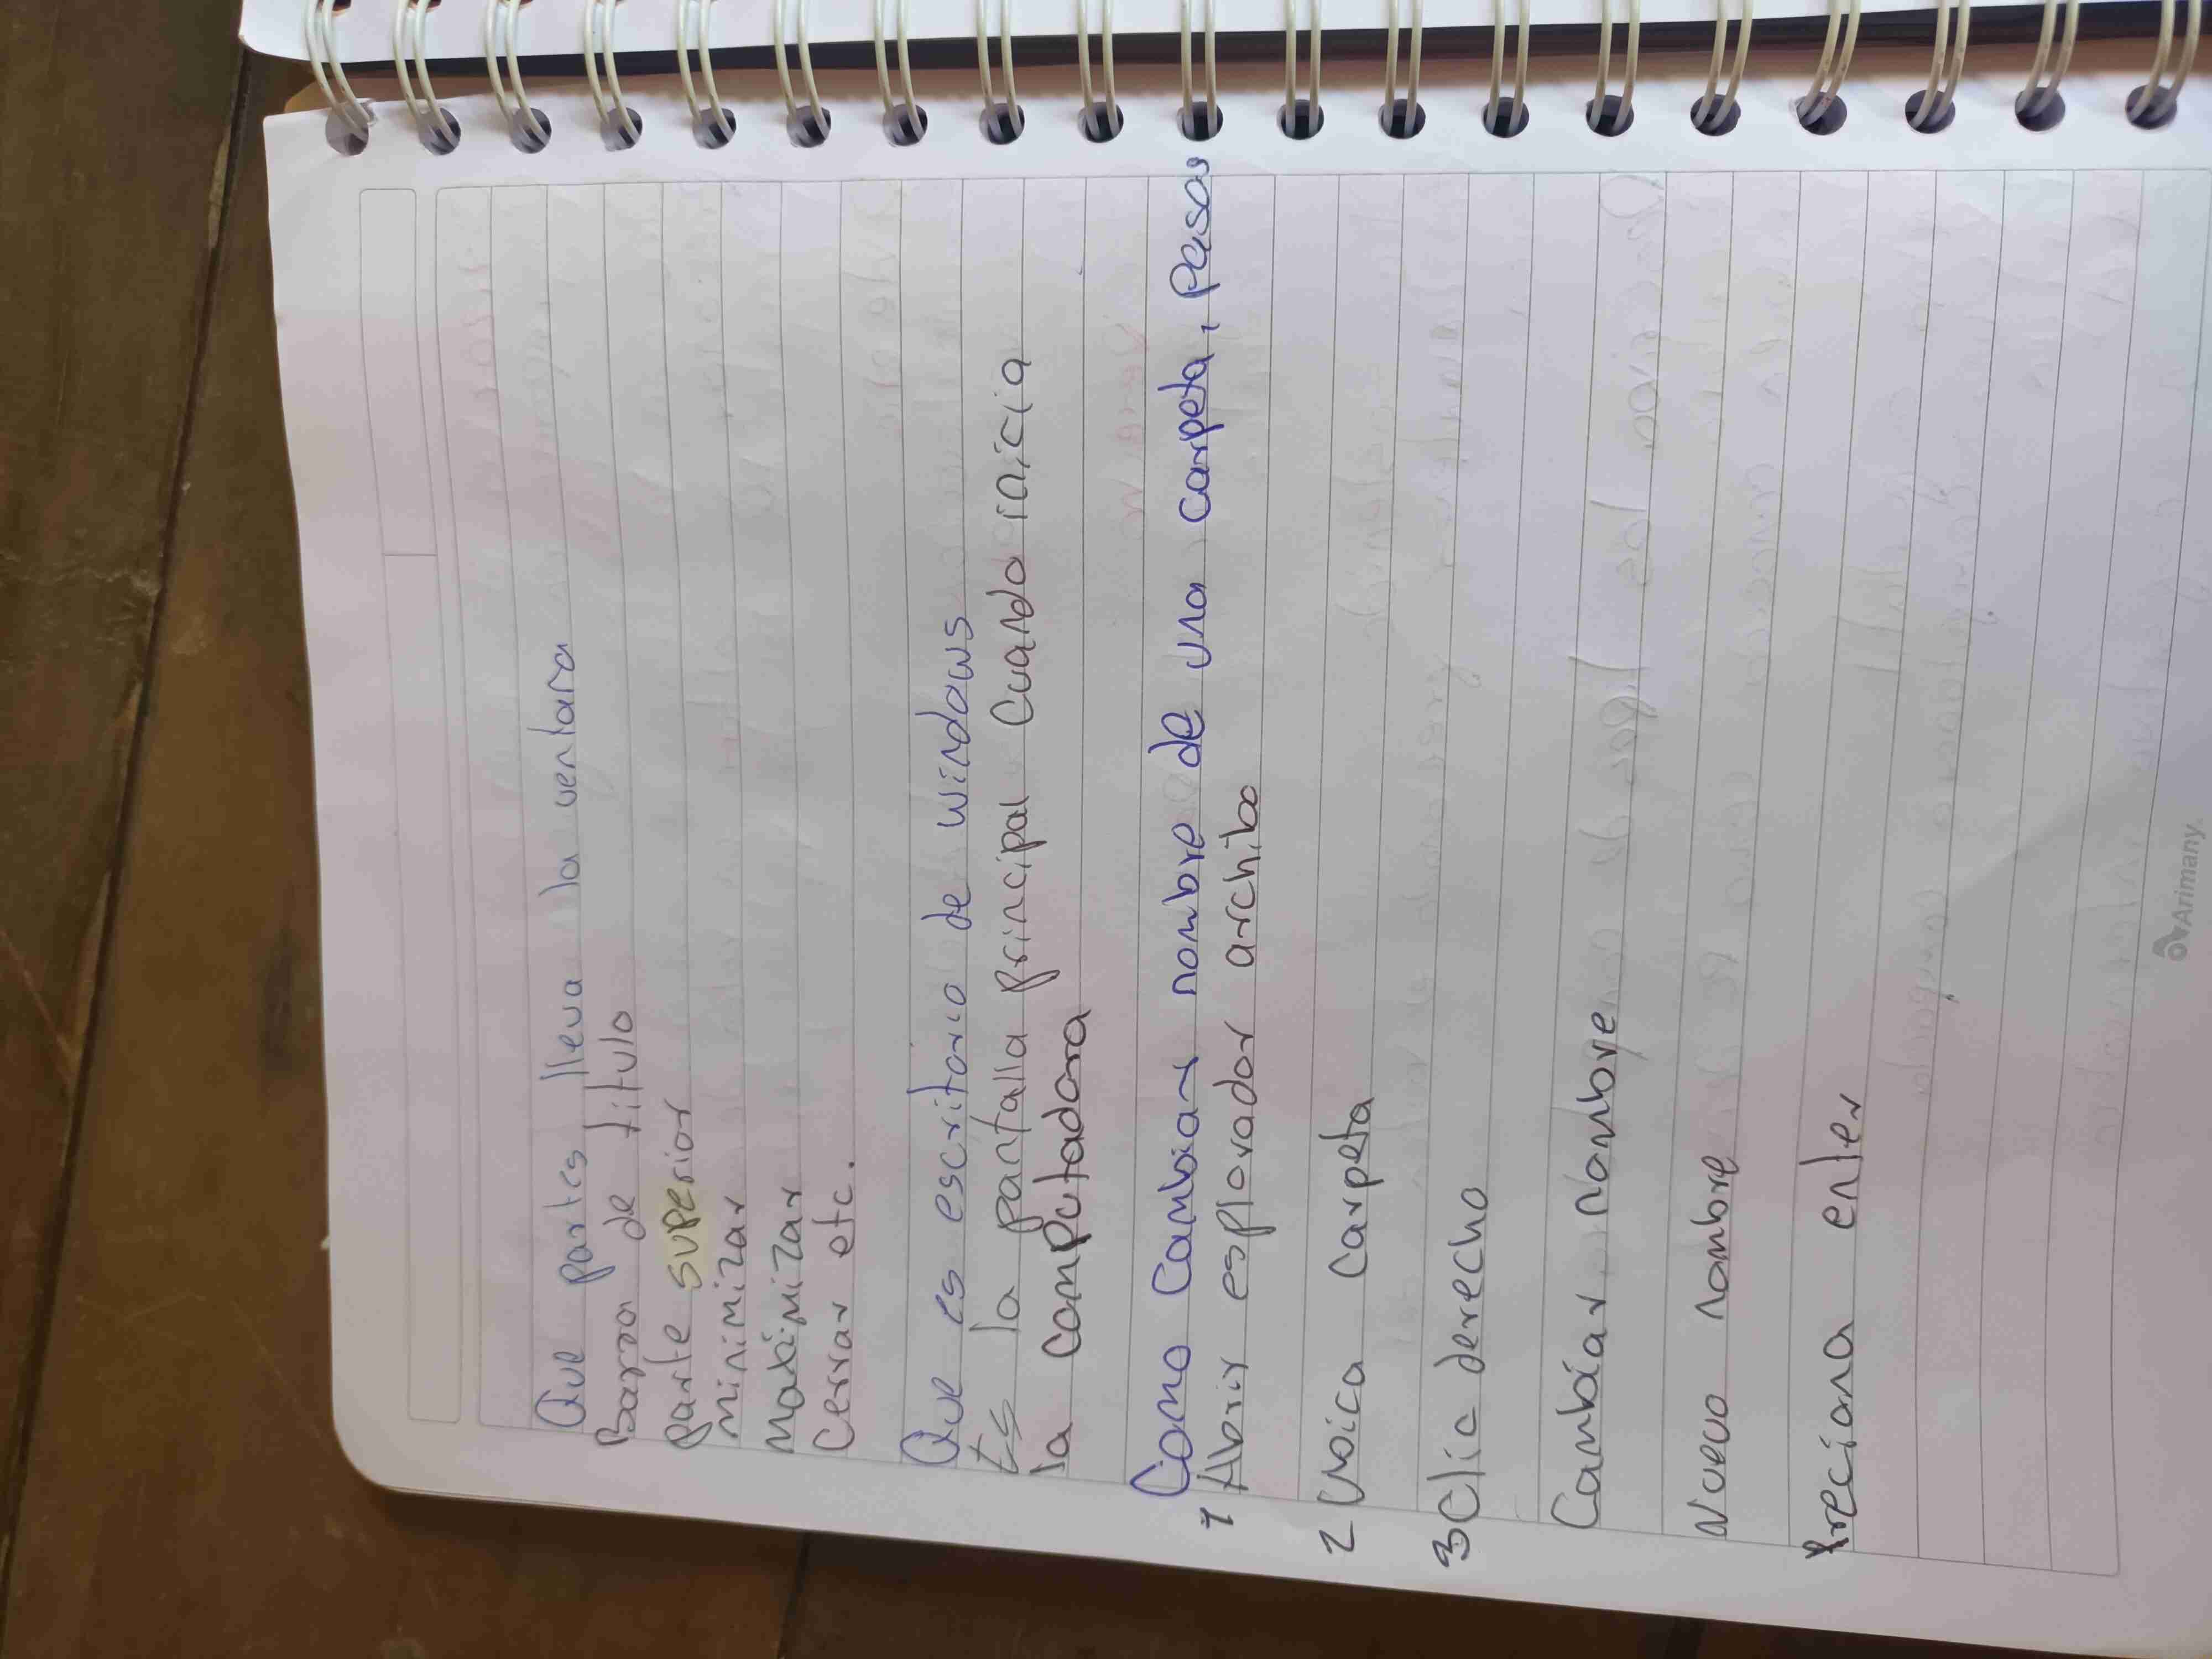 Que partes lleva la ventana
Barra de titulo
parte superior
Minimizar
Maximizar
Cerrar etc.
Que es escritorio de windows
Es la pantalla principal cuando inicia
la computadora
Como Cambiar nombre de una carpeta, pasos
1 Abrir esplorador archibo
2 Ubica carpeta
3 Clic derecho
Cambiar nombre
Nuevo nombre
Preciona enter
Arimany